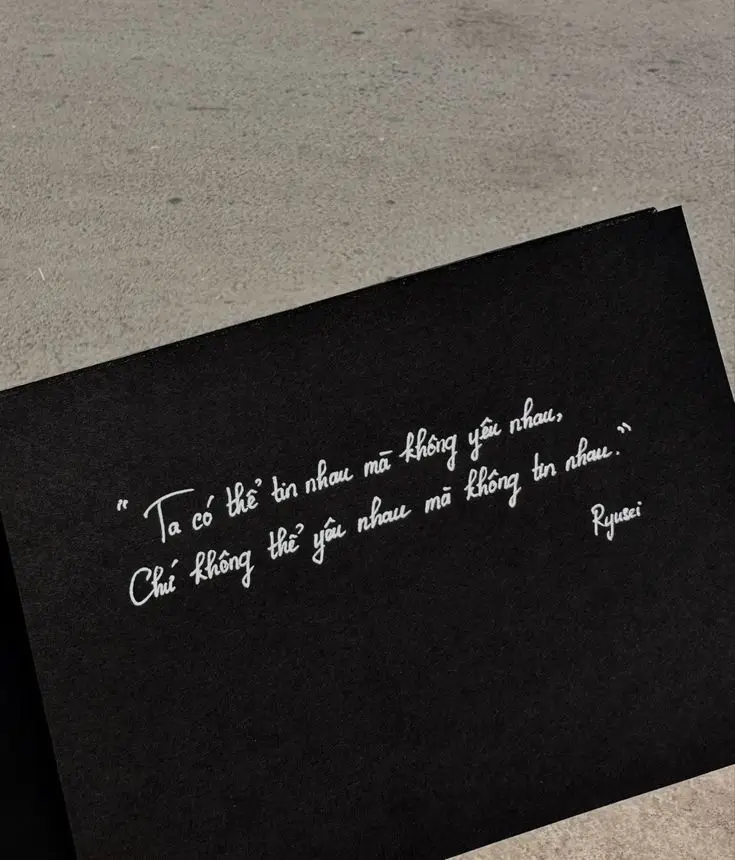 " Ta có thể tin nhau mà không yêu nhau,
Chứ không thể yêu nhau mà không tin nhau."
Ryusei